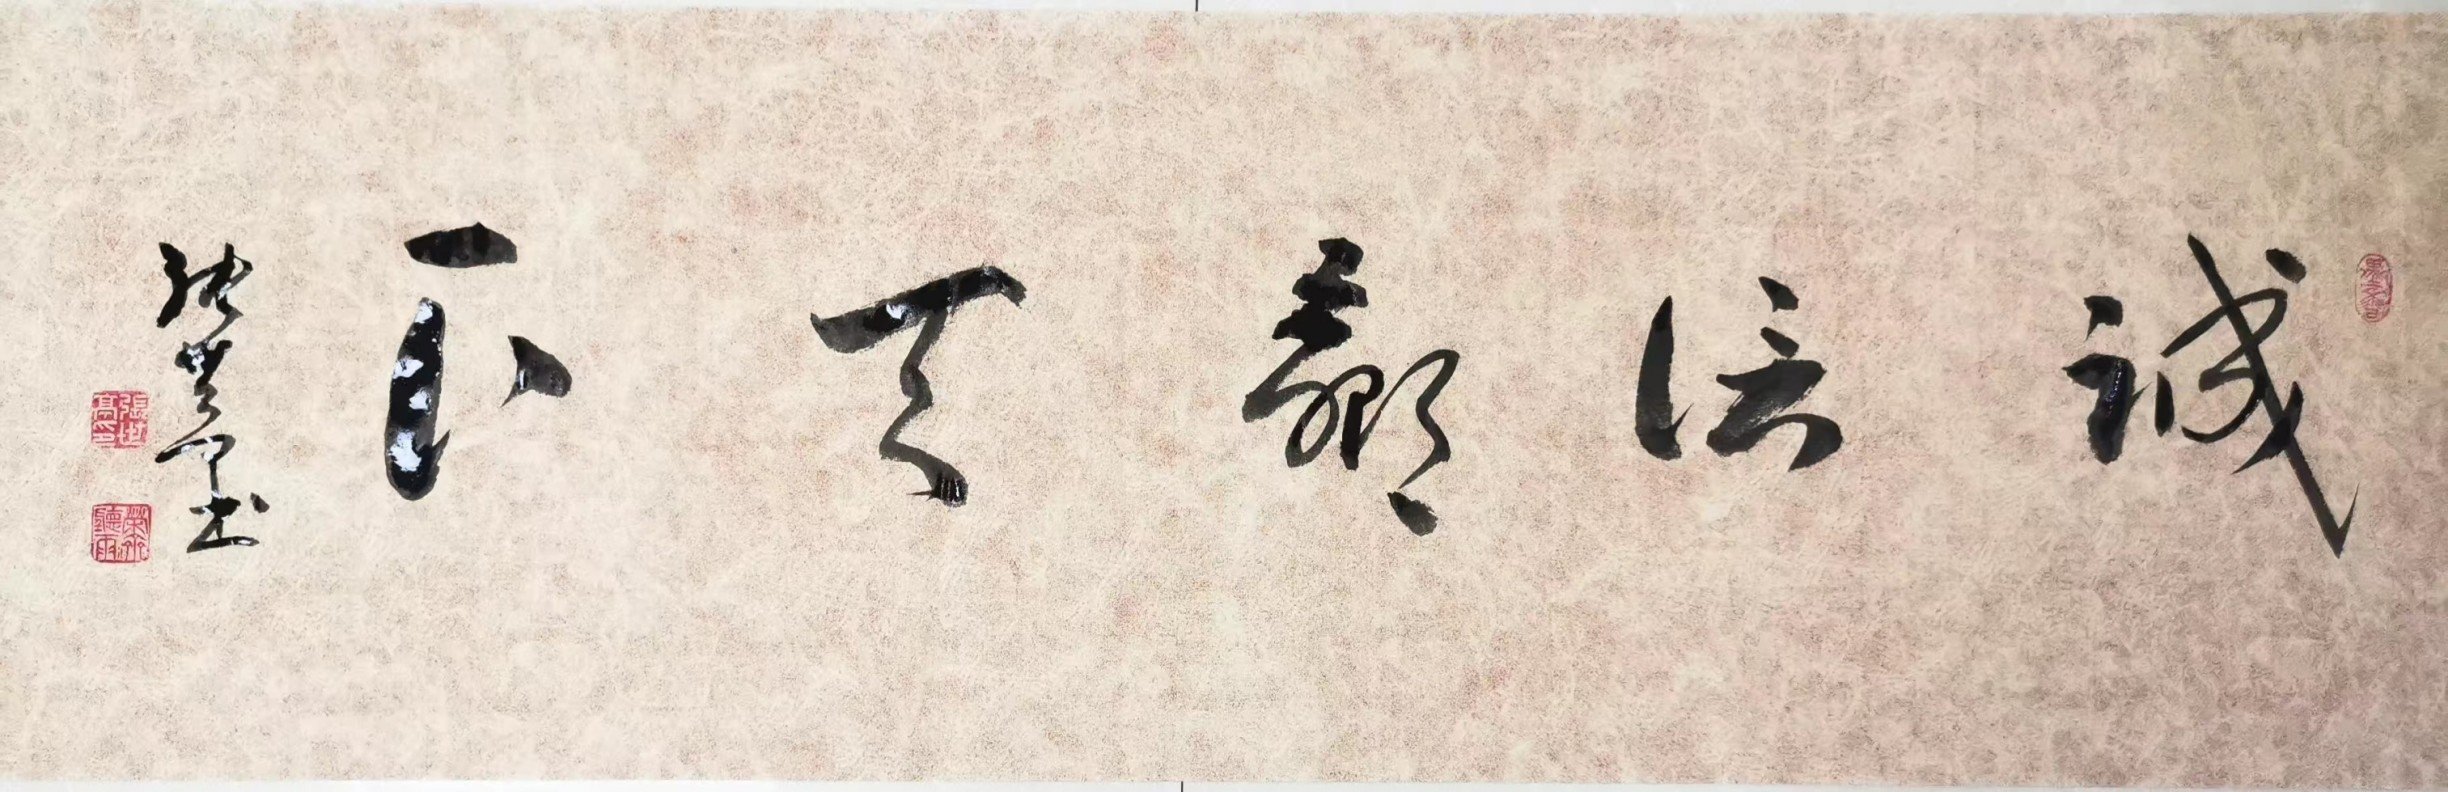 誠信贏天下
張世高書
張世高印
聽雨